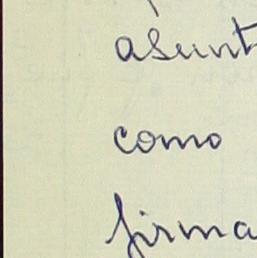 asunt
como
firma